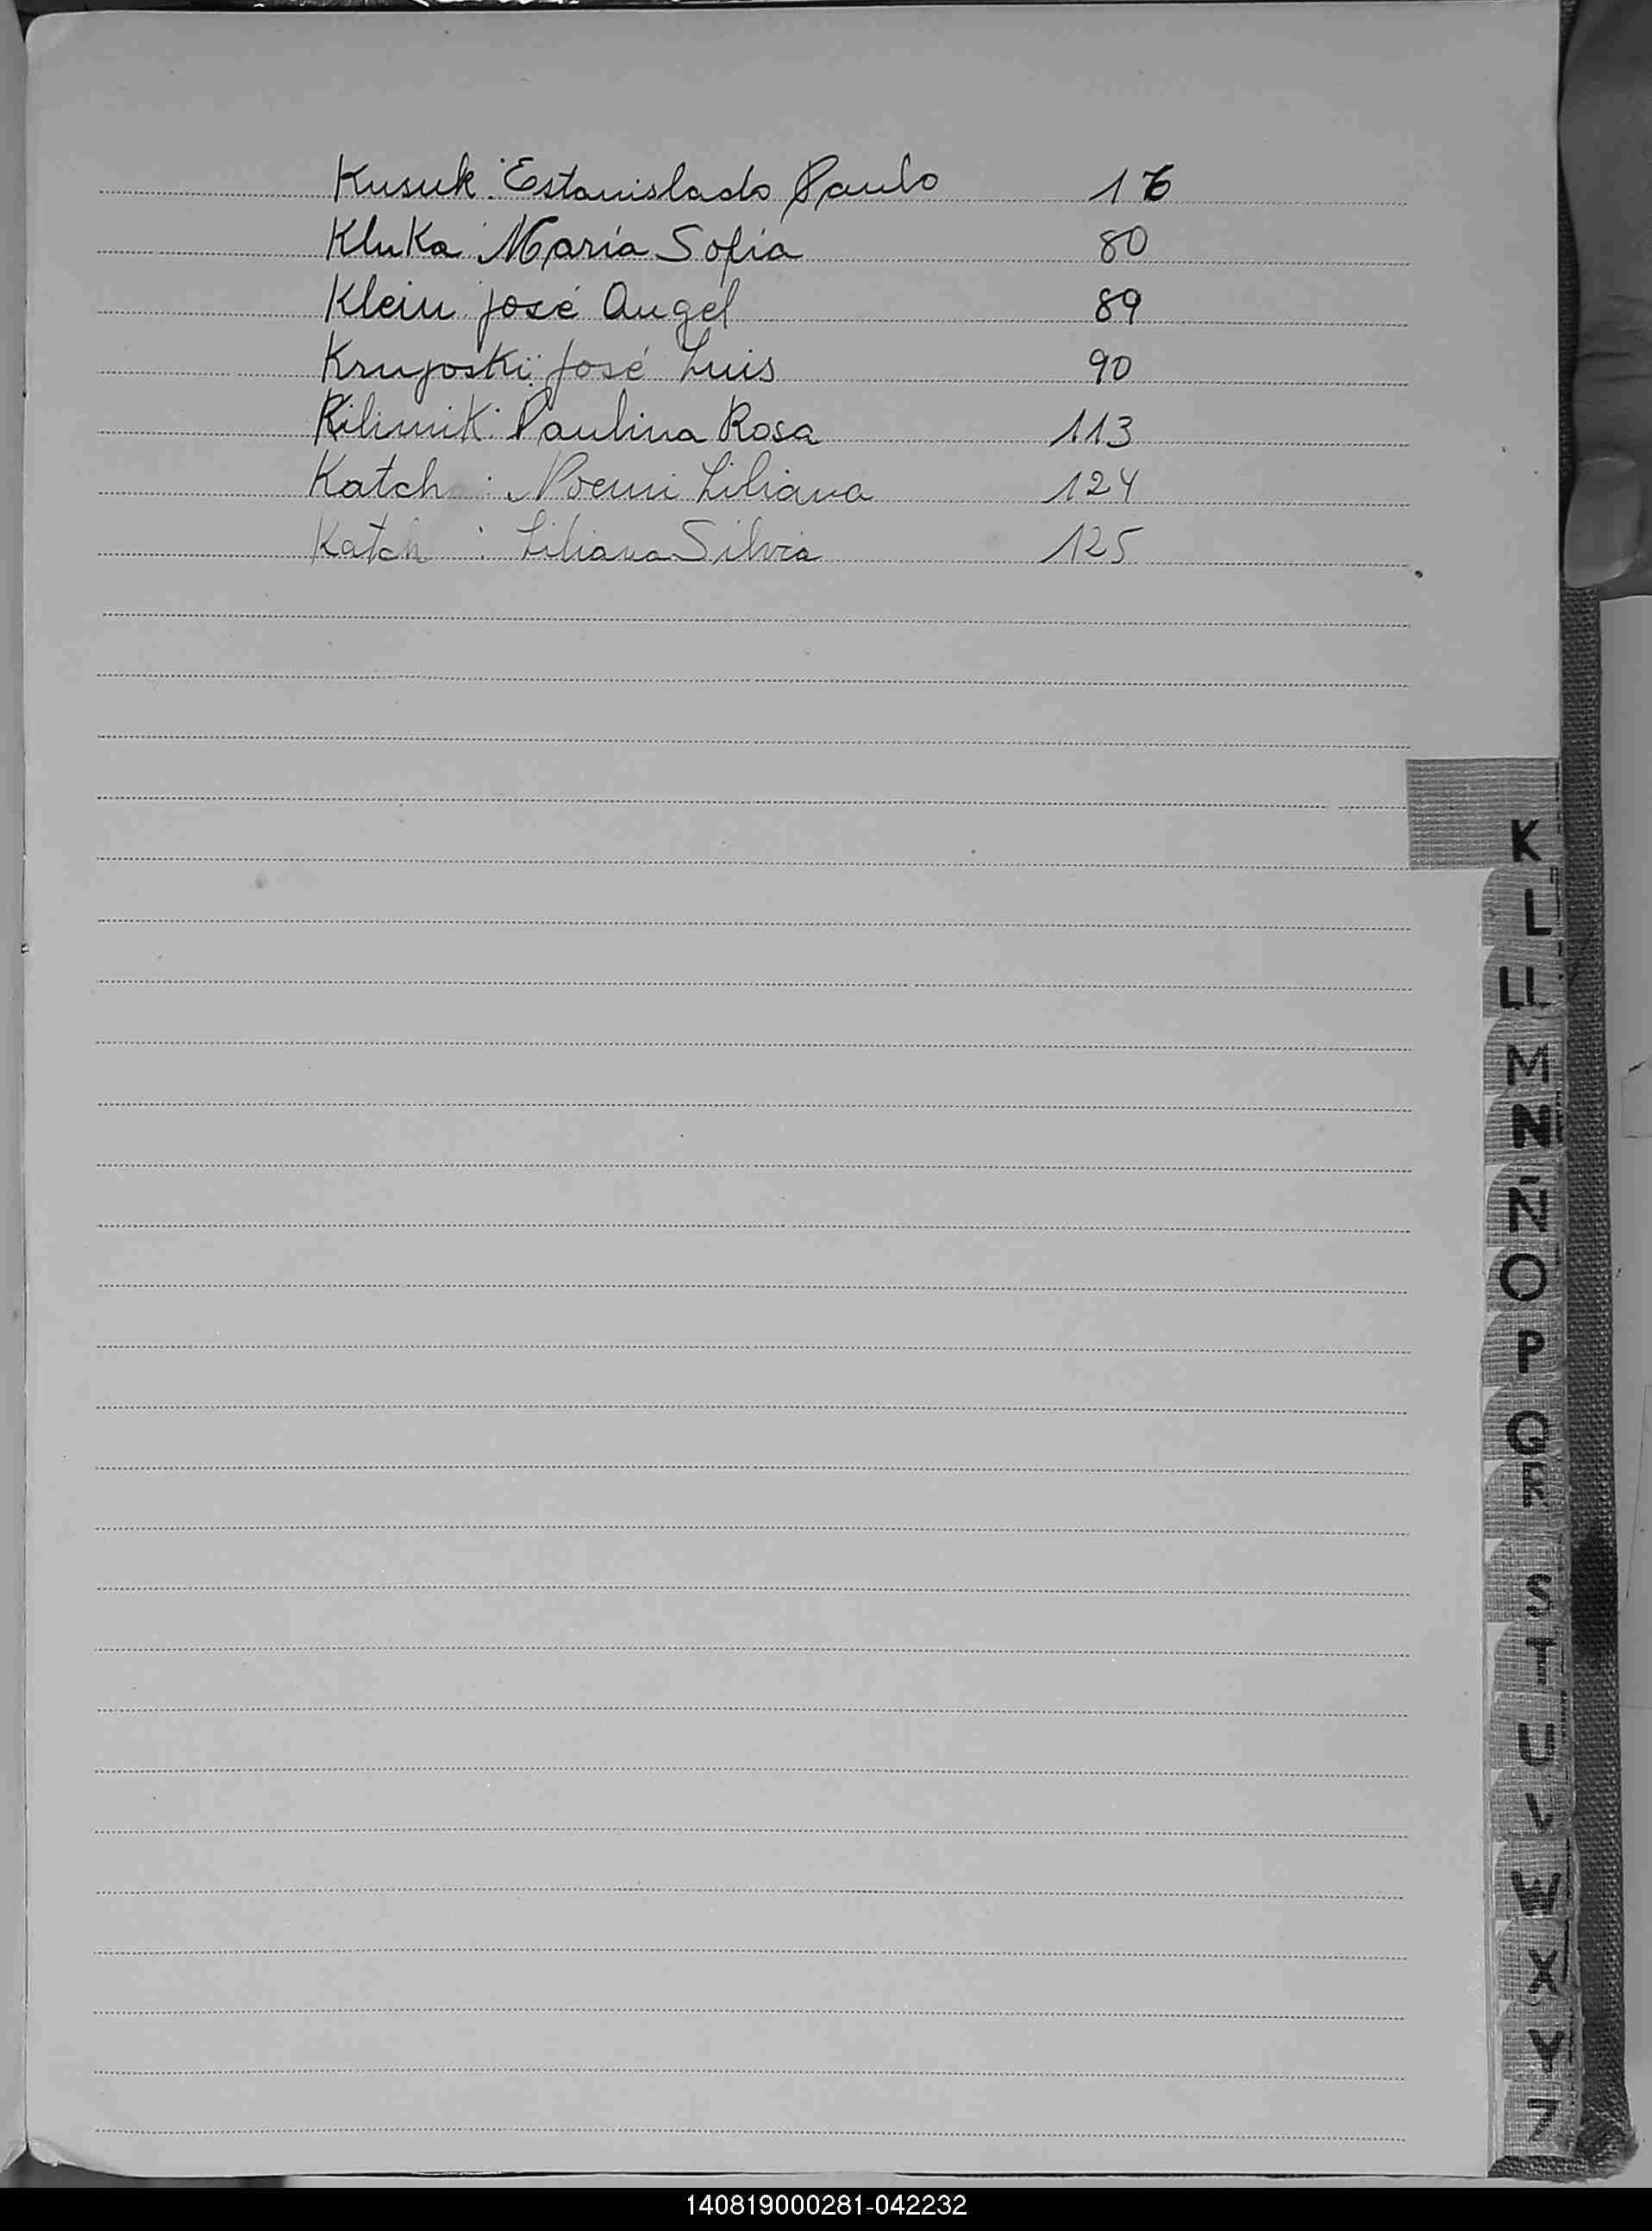 Kusuk: Estanislado Paulo 16
Kluka: Maria Sofia 80
Klein: José Angel 89
Krujoski: José Luis 90
Kilimik: Paulina Rosa 113
Katch : Noemi Liliana 124
Katch : Liliana Silvia 125
K
L
LL
M
N
Ñ
O
P
Q
R
S
T
U
V
W
X
Y
Z
140819000281-042232